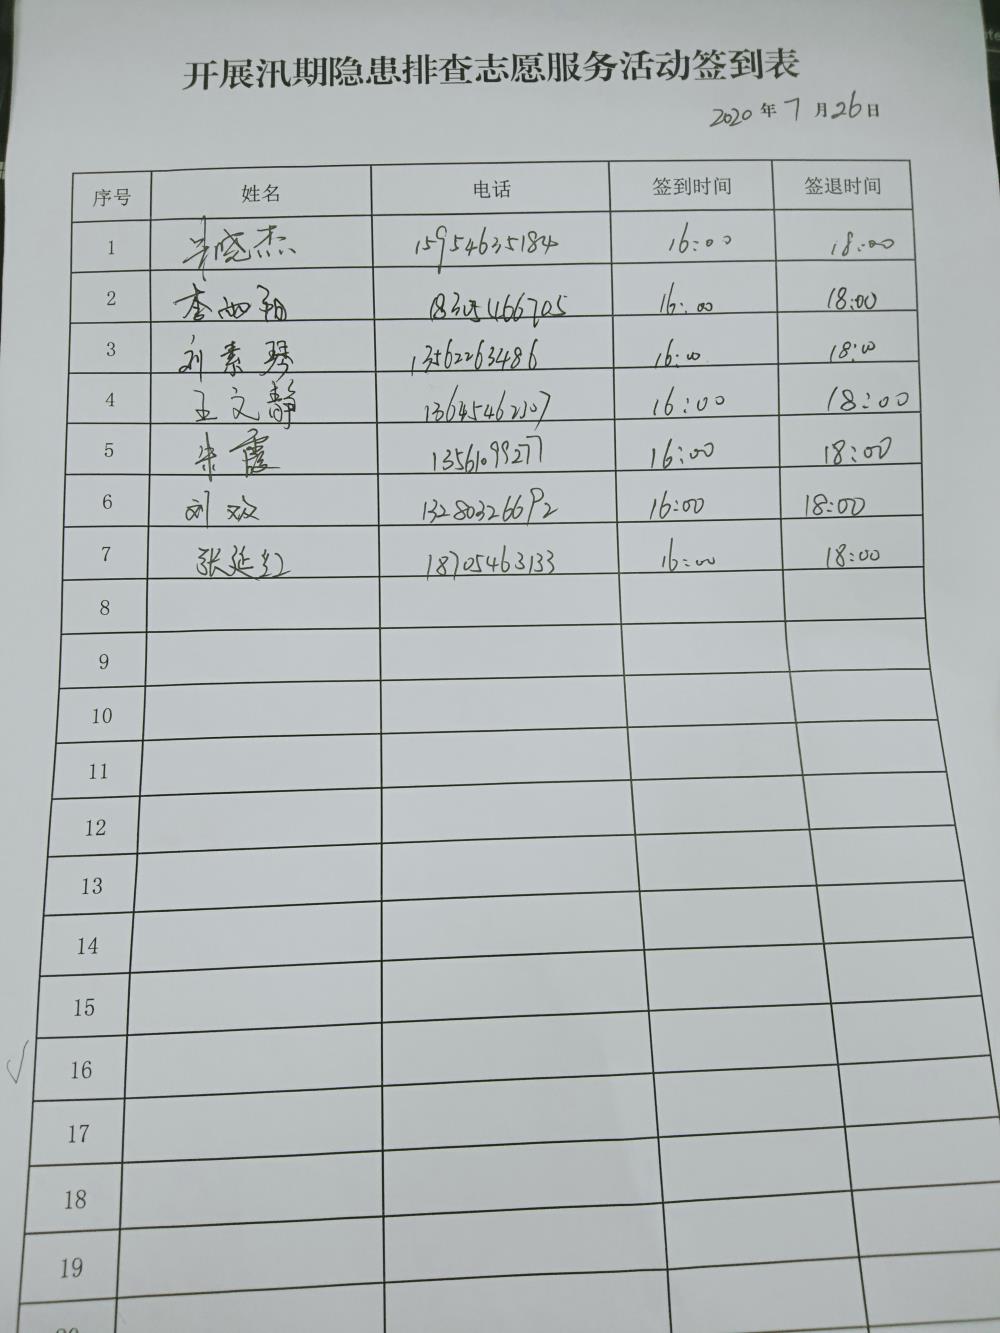 开展汛期隐患排查志愿服务活动签到表
2020年7月26日
序号 姓名 电话 签到时间 签退时间
1 晓杰 15954635184 16:00 18:00
2 李 18305466705 16:00 18:00
3 刘素琴 13562263486 16:00 18:00
4 王文静 13645462307 16:00 18:00
5 朱霞 13561099277 16:00 18:00
6 刘欢 13280326692 16:00 18:00
7 张延红 18705463133 16:00 18:00
8
9
10
11
12
13
14
15
16
17
18
19